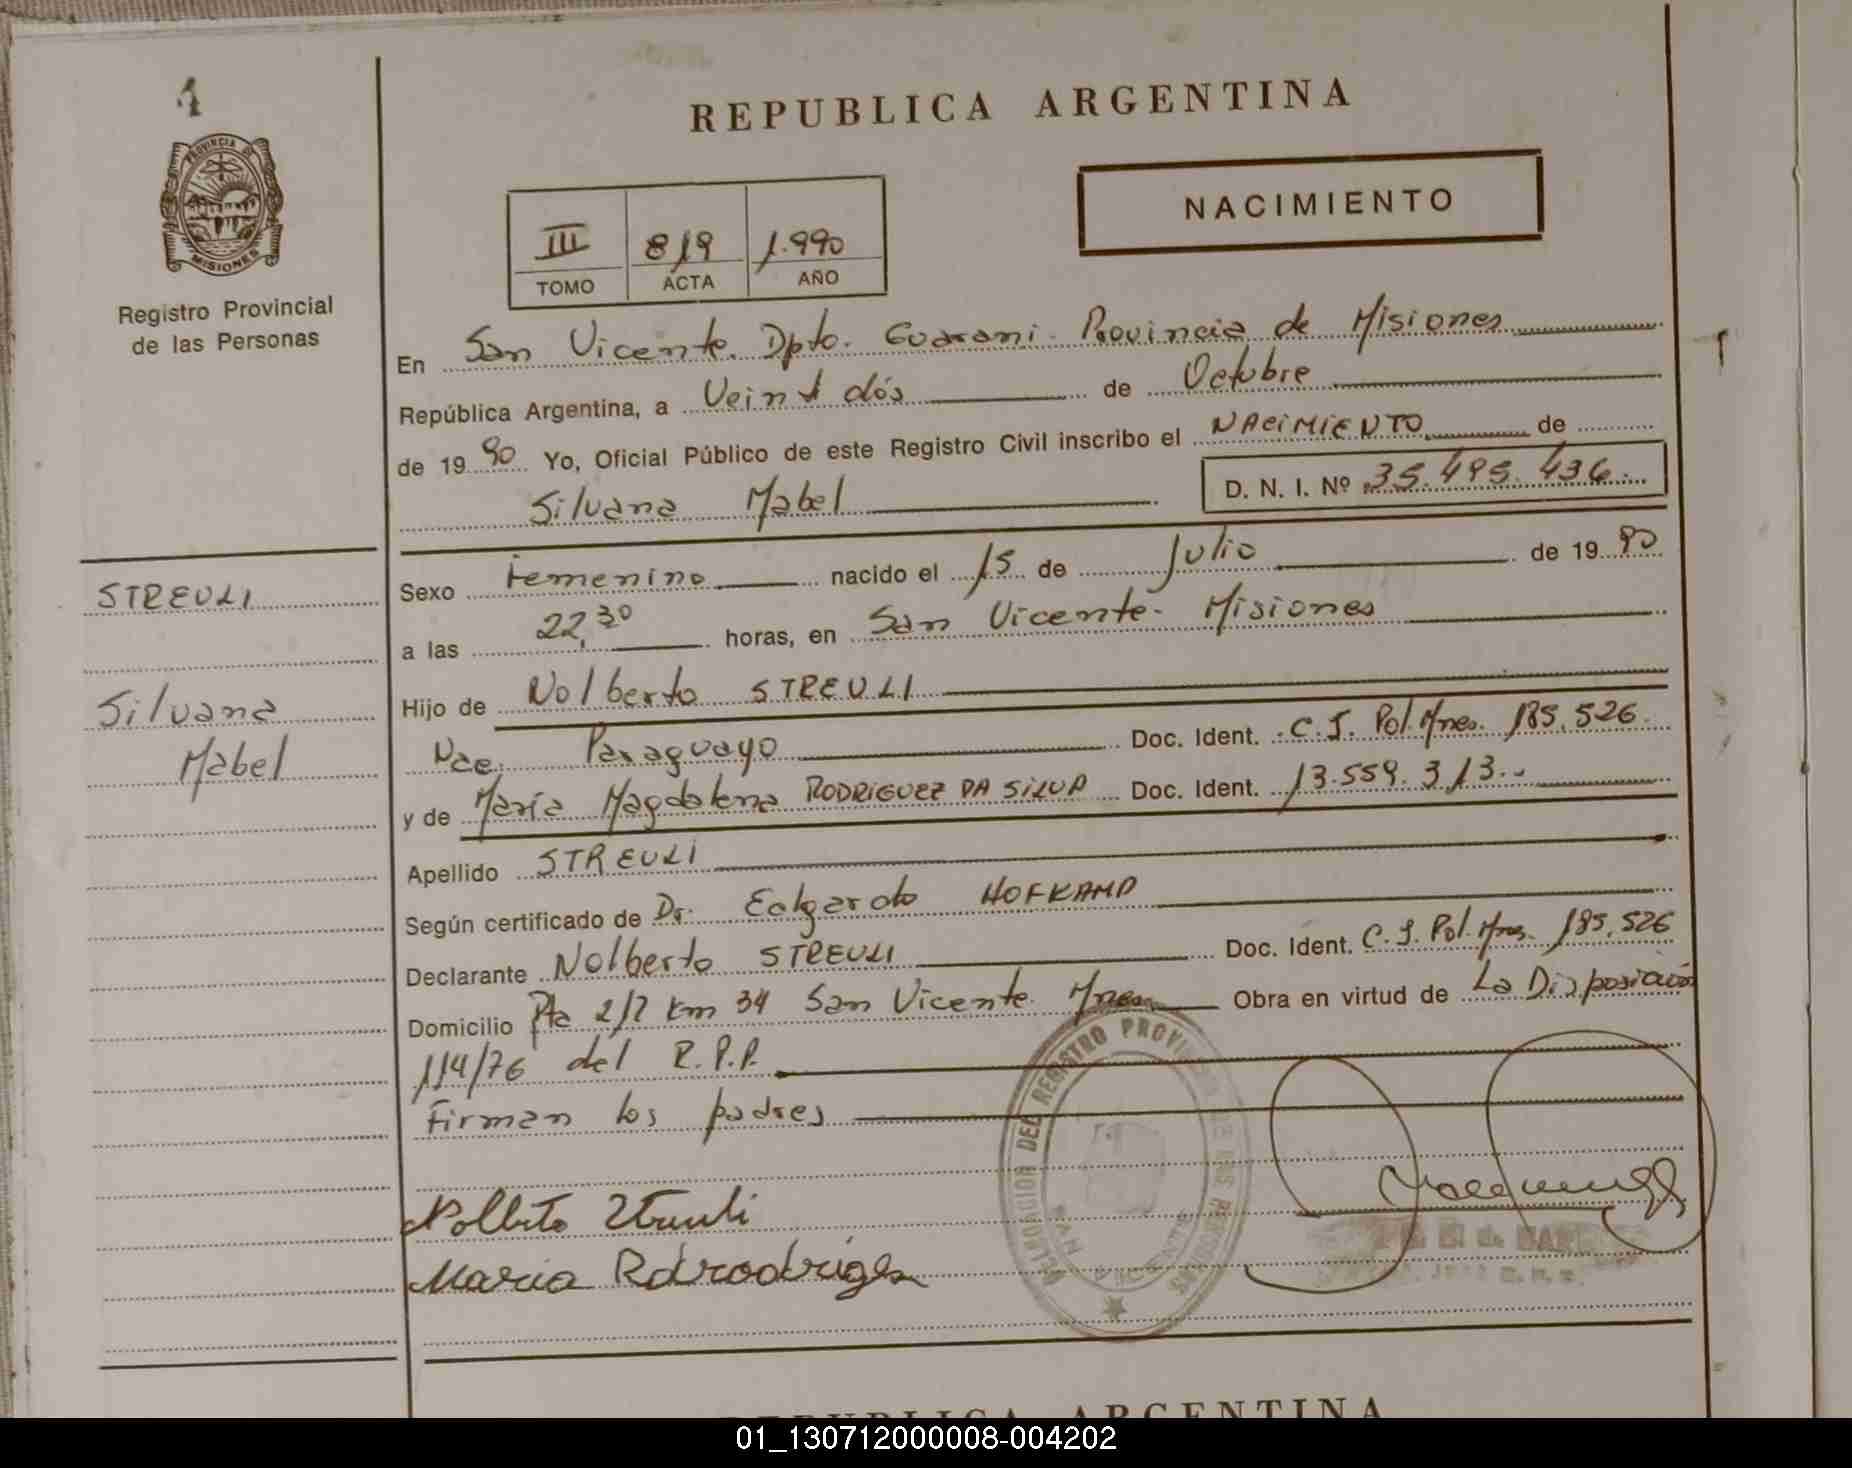 1
REPUBLICA ARGENTINA
PROVINCIA DE
MISIONES
Registro Provincial
de las Personas
NACIMIENTO
III 819 1.990
TOMO ACTA AÑO
En San Vicente. Dpto. Guarani. Provincia de Misiones
República Argentina, a Veinti dós de Octubre
de 1990 Yo, Oficial Público de este Registro Civil inscribo el NACIMIENTO de
Silvana Mabel D. N. I. Nº 35.495.436.
STREULI
Silvana
Mabel
Sexo Femenino nacido el 15 de Julio de 1990
a las 22,30 horas, en San Vicente - Misiones
Hijo de Nolberto STREULI
Nac. Paraguayo Doc. Ident. C.I. Pol. Mnes. 185.526.
y de María Magdalena RODRIGUEZ DA SILVA Doc. Ident. 13.559.313.-
Apellido STREULI
Según certificado de Dr. Edgardo HOFKAMP
Declarante Nolberto STREULI Doc. Ident. C.I. Pol. Mnes. 185.526
Domicilio Pta 2/7 Km 34 San Vicente. Mnes Obra en virtud de La Disposición
114/76 del R.P.P.
Firman los padres
DELEGACION DEL REGISTRO PROVINCIAL DE LAS PERSONAS
SAN VICENTE
Nolberto Streuli
Maria Rdrrodrigez
REPUBLICA ARGENTINA
01_130712000008-004202